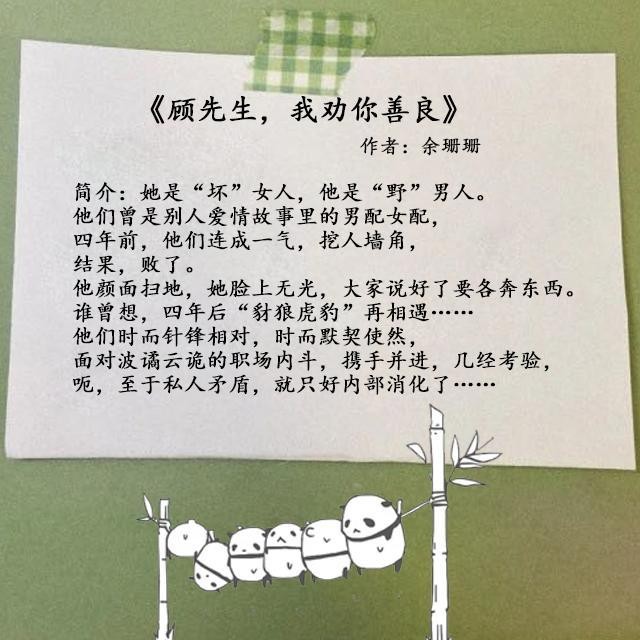 《顾先生，我劝你善良》
作者：余珊珊
简介：她是“坏”女人，他是“野”男人。
他们曾是别人爱情故事里的男配女配，
四年前，他们连成一气，挖人墙角，
结果，败了。
他颜面扫地，她脸上无光，大家说好了要各奔东西。
谁曾想，四年后“豺狼虎豹”再相遇……
他们时而针锋相对，时而默契使然，
面对波谲云诡的职场内斗，携手并进，几经考验，
呃，至于私人矛盾，就只好内部消化了……